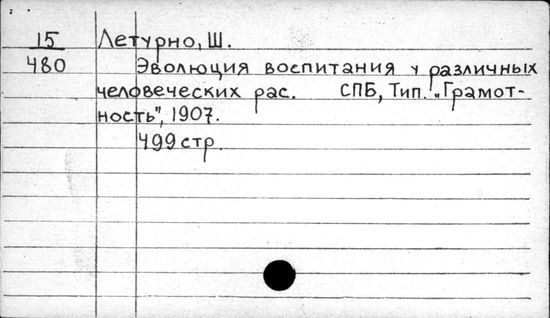 15 Летурно, Ш.
480 Эволюция воспитания у различных
человеческих рас. СПБ, Тип. „Грамот-
ность", 1907.
499 стр.